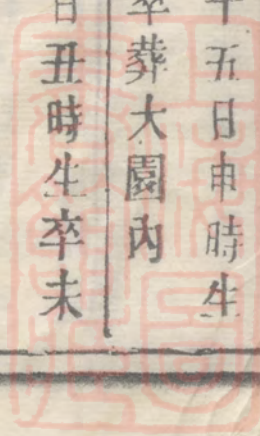 十五日申時生
卒葬大園內
日丑時生卒未